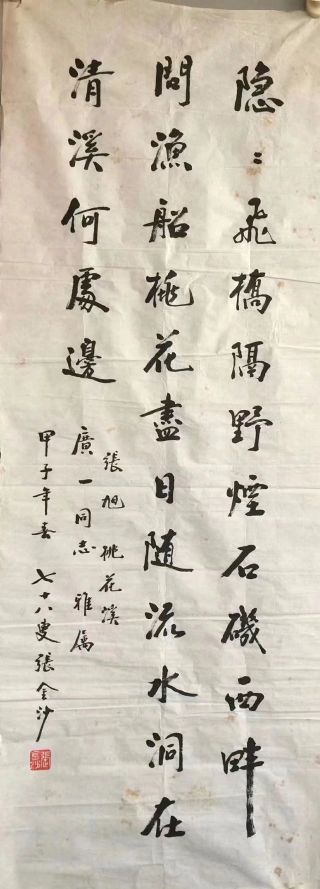 隐〻飛橋隔野煙石磯西畔
問漁船桃花盡日随流水洞在
清溪何處邊
張旭桃花溪
廣一同志雅属
甲子年春 七十八叟張金沙